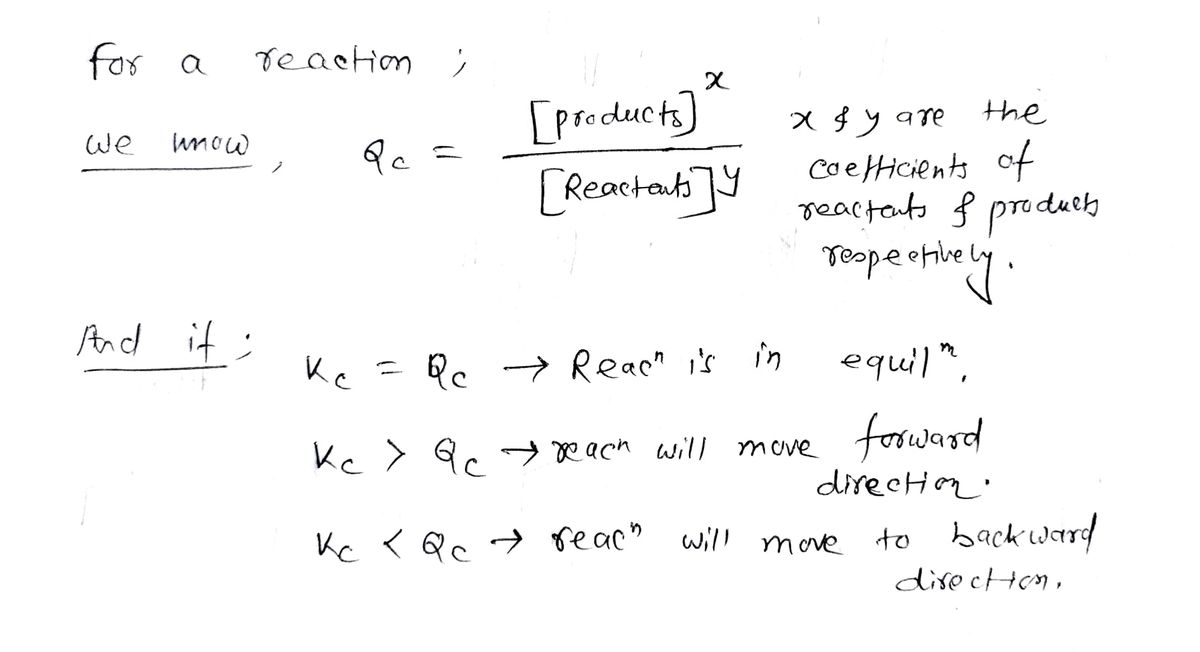 for a reaction ;
we know , Qc = [products]^x / [Reactants]^y
x & y are the
coefficients of
reactants & products
respectively.
And if ;
Kc = Qc → Reacⁿ is in equilᵐ.
Kc > Qc → reacn will move forward
direction.
Kc < Qc → reacⁿ will move to backward
direction.